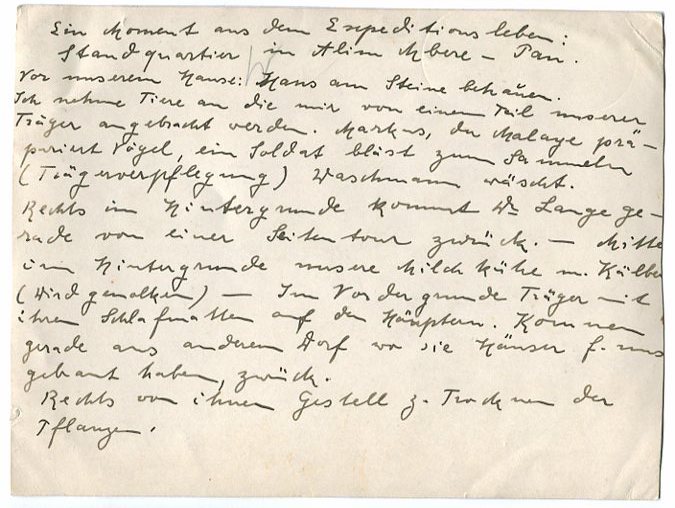 Ein Moment aus dem Expeditionsleben:
Standquartier in Alim Mbere - Pan.
Vor unserem Hause: Hans am Steine behauen.
Ich nehme Tiere an die mir von einem Teil unserer
Träger angebracht werden. Markus, der Malaye prä-
pariert Vögel, ein Soldat bläst zum Sammeln
(Trägerverpflegung) Waschmann wäscht.
Rechts im Hintergrunde kommt Dr Lange ge-
rade von einer Seitentour zurück. — Mitte
im Hintergrunde unsere Milchkühe m. Kälber
(Wird gemolken) — Im Vordergrunde Träger mit
ihren Schlafmatten auf den Häuptern. Kommen
gerade aus anderem Dorf wo sie Häuser f. uns
gebaut haben, zurück.
Rechts von ihnen Gestell z. Trocknen der
Pflanzen.